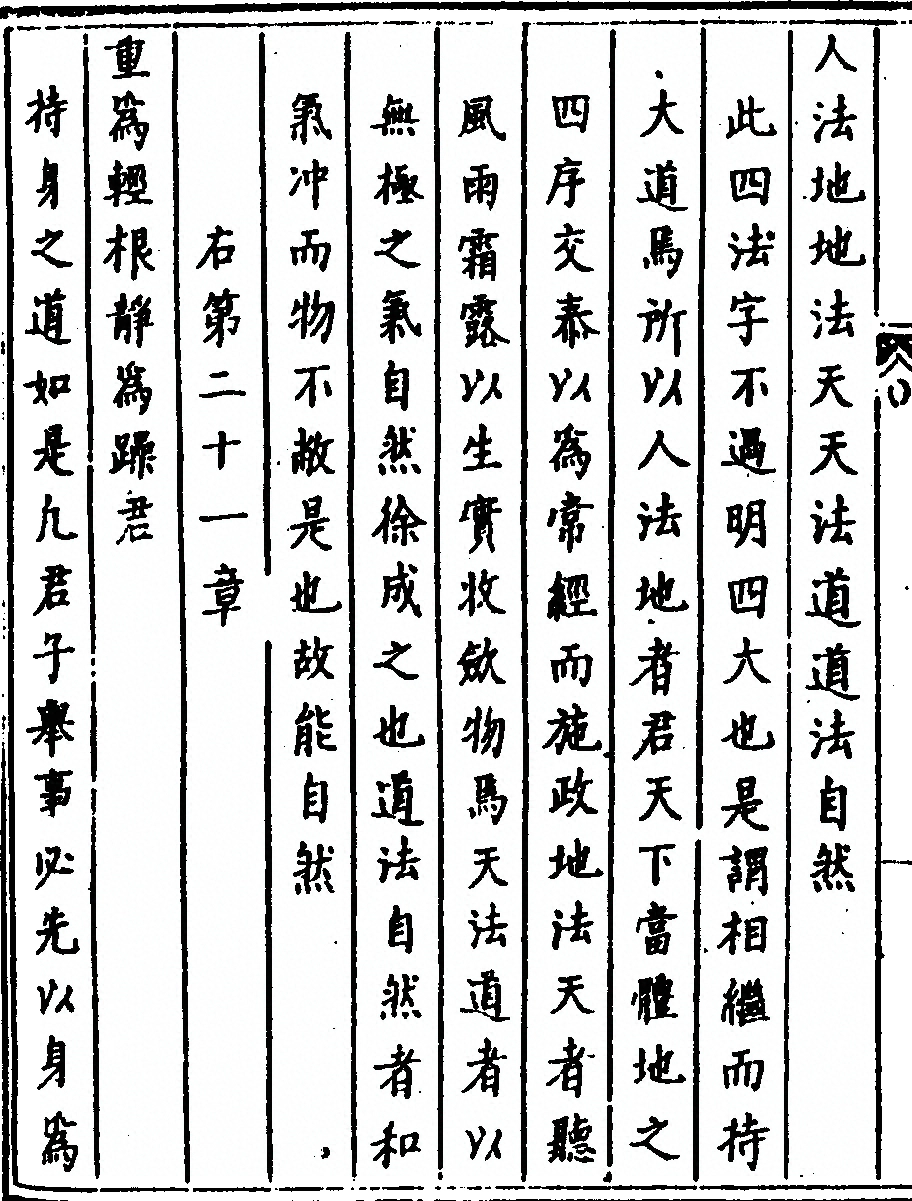 人法地地法天天法道道法自然
此四法字不過明四大也是謂相繼而持
大道焉所以人法地者君天下當體地之
四序交泰以爲常經而施政地法天者聽
風雨霜露以生實收斂物焉天法道者以
無極之氣自然徐成之也道法自然者和
氣冲而物不敝是也故能自然
右第二十一章
重爲輕根靜爲躁君
持身之道如是凡君子舉事必先以身爲